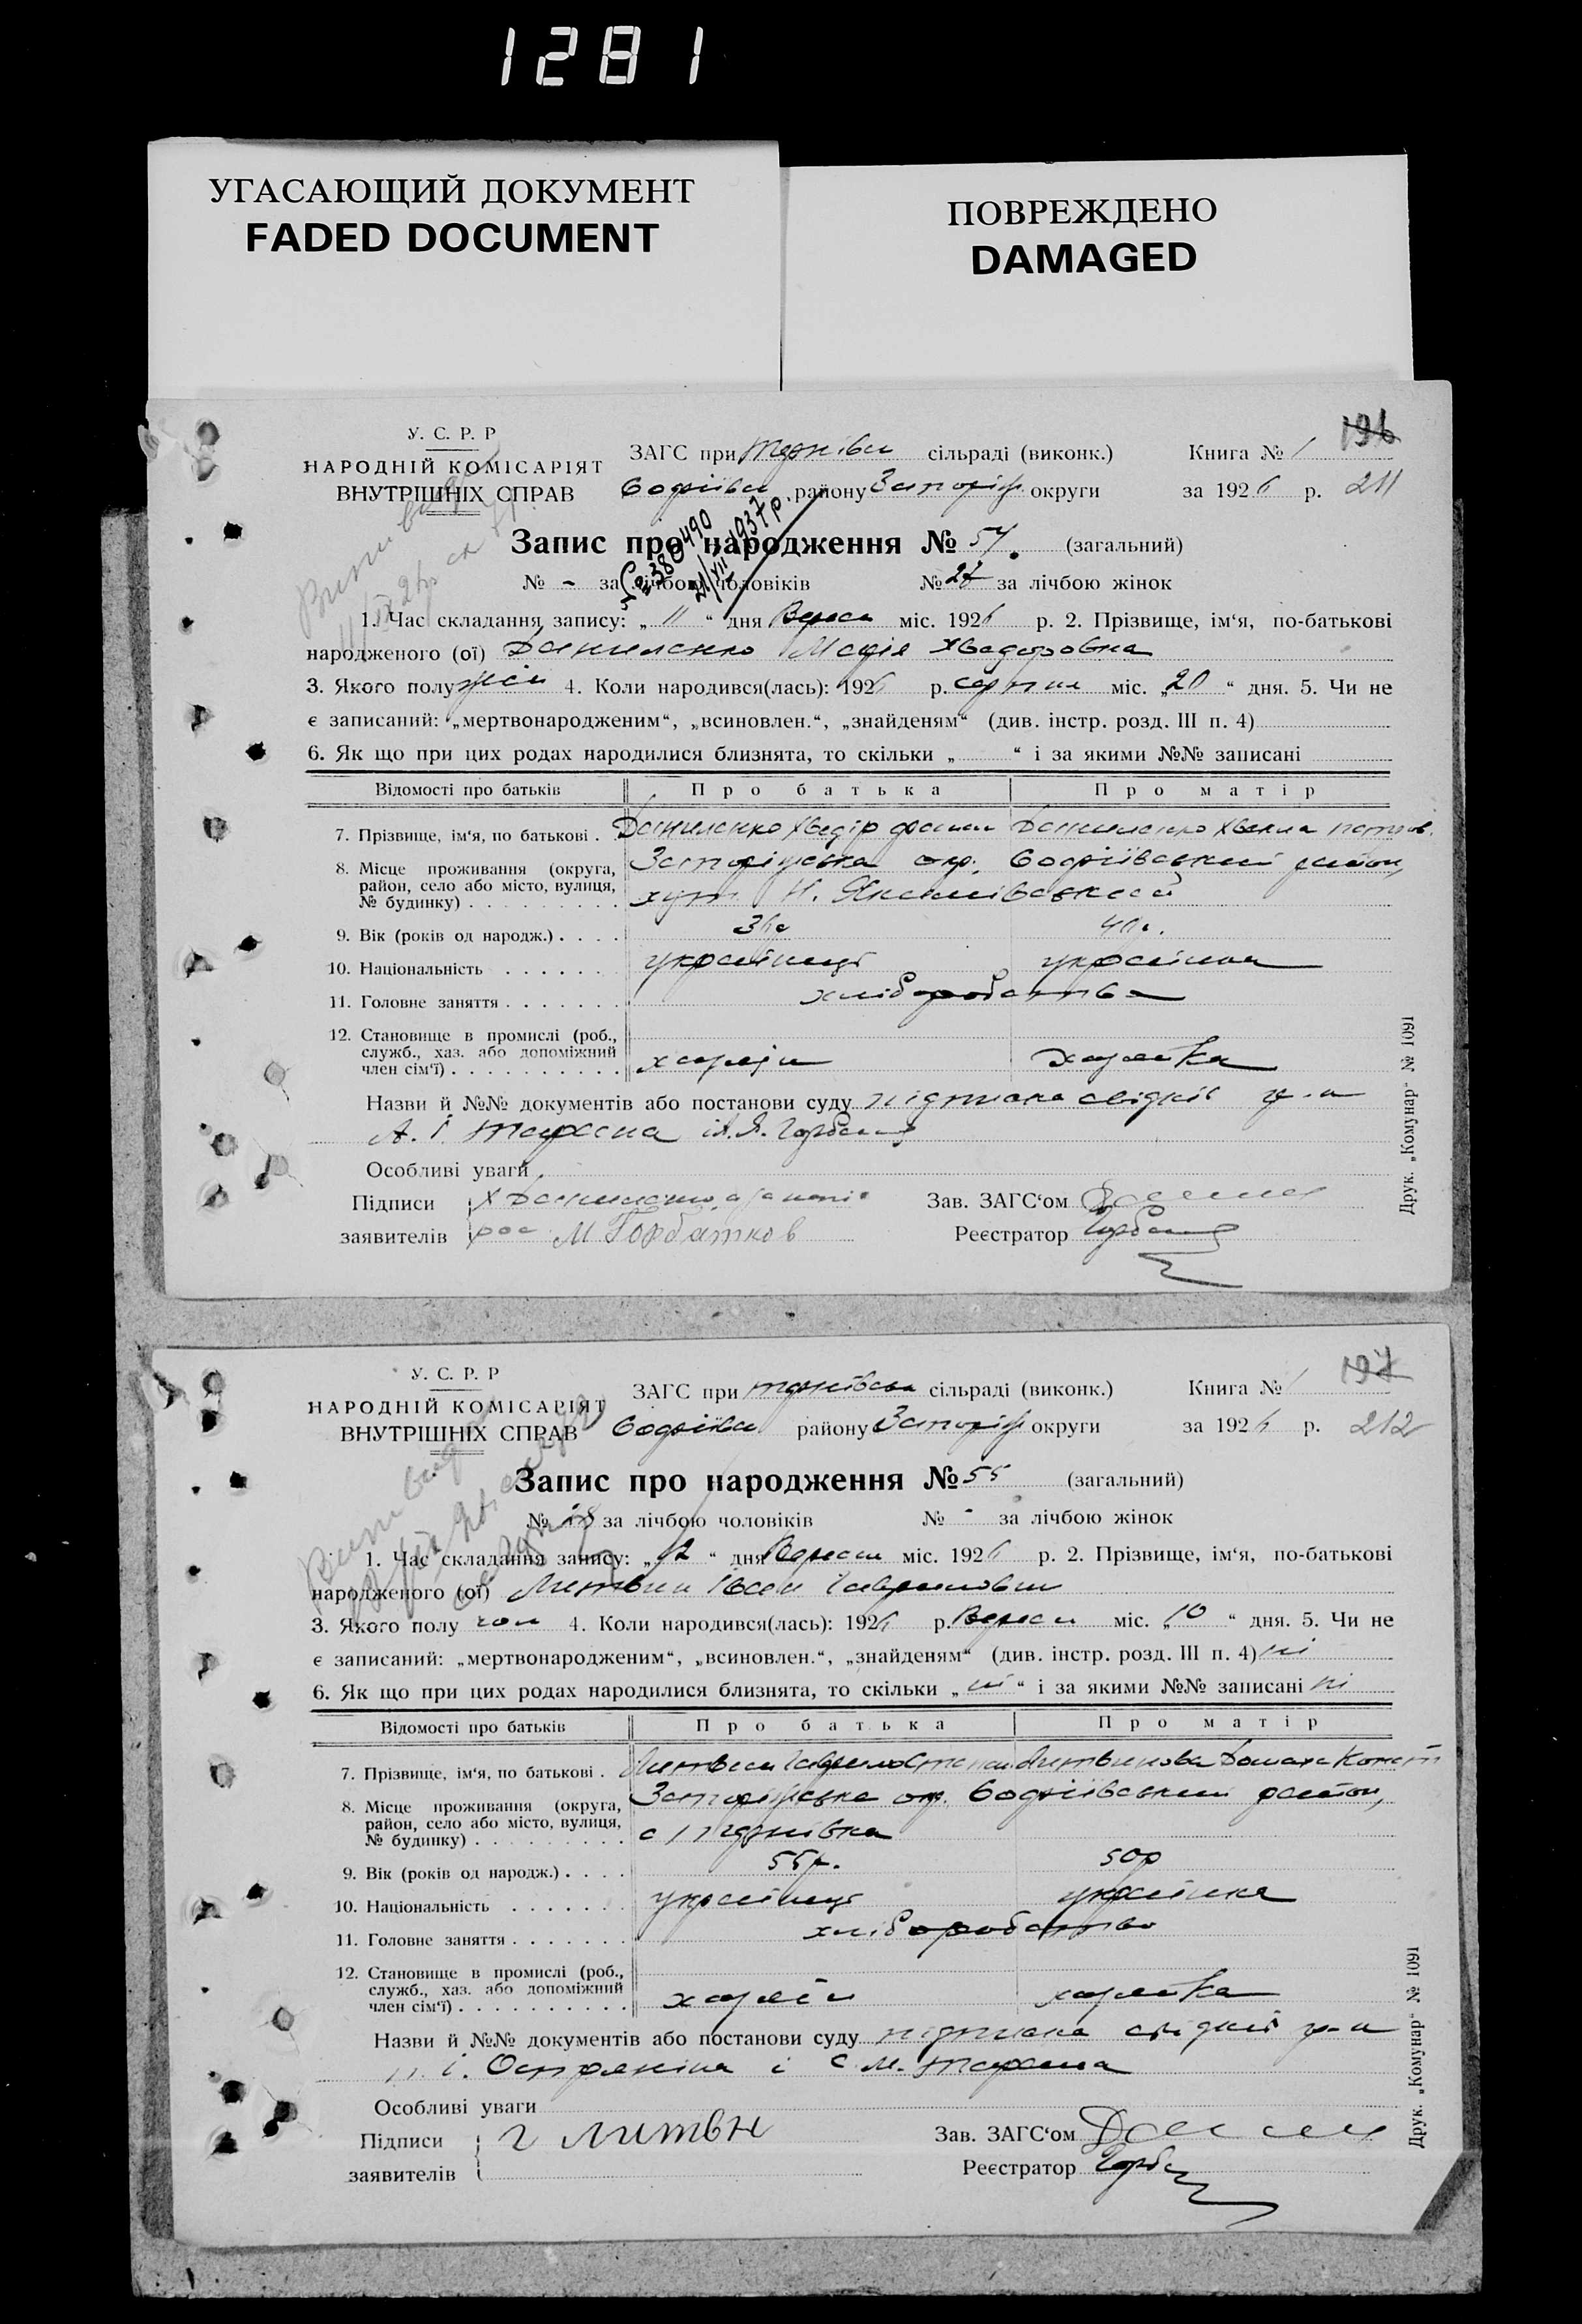 1281
УГАСАЮЩИЙ ДОКУМЕНТ
FADED DOCUMENT
ПОВРЕЖДЕНО
DAMAGED
196
У. С. Р. Р
НАРОДНІЙ КОМІСАРІЯТ
ВНУТРІШНІХ СПРАВ
ЗАГС при Тернівськ сільраді (виконк.) Книга № 1
району Запоріж округи за 1926 р. 211
Запис про народження № 54. (загальний)
№ - за лічбою чоловіків № 27 за лічбою жінок
380490
21/VII 1937 р.
1. Час складання запису: „ 11 “ дня Верес міс. 1926 р. 2. Прізвище, ім‘я, по-батькові
народженого (ої) Даниленко Марія Хведоровна
3. Якого полу жін 4. Коли народився(лась): 1926 р. серпня міс. „ 20 “ дня. 5. Чи не
є записаний: „мертвонародженим“, „всиновлен.“, „знайденям“ (див. інстр. розд. III п. 4)
6. Як що при цих родах народилися близнята, то скільки „ “ і за якими №№ записані
Відомості про батьків Про батька Про матір
7. Прізвище, ім‘я, по батькові . Даниленко Хведір Даниленко
8. Місце проживання (округа, Запоріжська окр. район,
район, село або місто, вулиця,
№ будинку) . хут. Н.
9. Вік (років од народж.) .
10. Національність . українець українка
11. Головне заняття . хліборобство
12. Становище в промислі (роб.,
служб., хаз. або допоміжний
член сім‘ї) . хазяїн хазяйка
Назви й №№ документів або постанови суду підписка свідків гр-н
А. І. Тарана і А. Я.
Особливі уваги
Підписи Х Даниленко
заявителів М Горбатков
Зав. ЗАГС‘ом
Реєстратор
Друк. „Комунар“ № 1091
197
У. С. Р. Р
НАРОДНІЙ КОМІСАРІЯТ
ВНУТРІШНІХ СПРАВ
ЗАГС при Тернівськ сільраді (виконк.) Книга № 1
району Запоріж округи за 1926 р. 212
Запис про народження № 55 (загальний)
№ за лічбою чоловіків № - за лічбою жінок
1. Час складання запису: „ 12 “ дня Вересн міс. 1926 р. 2. Прізвище, ім‘я, по-батькові
народженого (ої) Литвин Іван Гаврилович
3. Якого полу чол 4. Коли народився(лась): 1926 р. Вересн міс. „ 10 “ дня. 5. Чи не
є записаний: „мертвонародженим“, „всиновлен.“, „знайденям“ (див. інстр. розд. III п. 4) ні
6. Як що при цих родах народилися близнята, то скільки „ ні “ і за якими №№ записані ні
Відомості про батьків Про батька Про матір
7. Прізвище, ім‘я, по батькові . Литвин Гаврило Степан Литвинова Домаха Конст
8. Місце проживання (округа, Запоріжська окр. район,
район, село або місто, вулиця,
№ будинку) . с Тернівка
9. Вік (років од народж.) . 55р. 50р
10. Національність . українець українка
11. Головне заняття . хліборобство
12. Становище в промислі (роб.,
служб., хаз. або допоміжний
член сім‘ї) . хазяїн хазяйка
Назви й №№ документів або постанови суду підписка свідків гр-н
і. Остряніна і С. М. Тарана
Особливі уваги
Підписи Г Литвн
заявителів
Зав. ЗАГС‘ом
Реєстратор
Друк. „Комунар“ № 1091